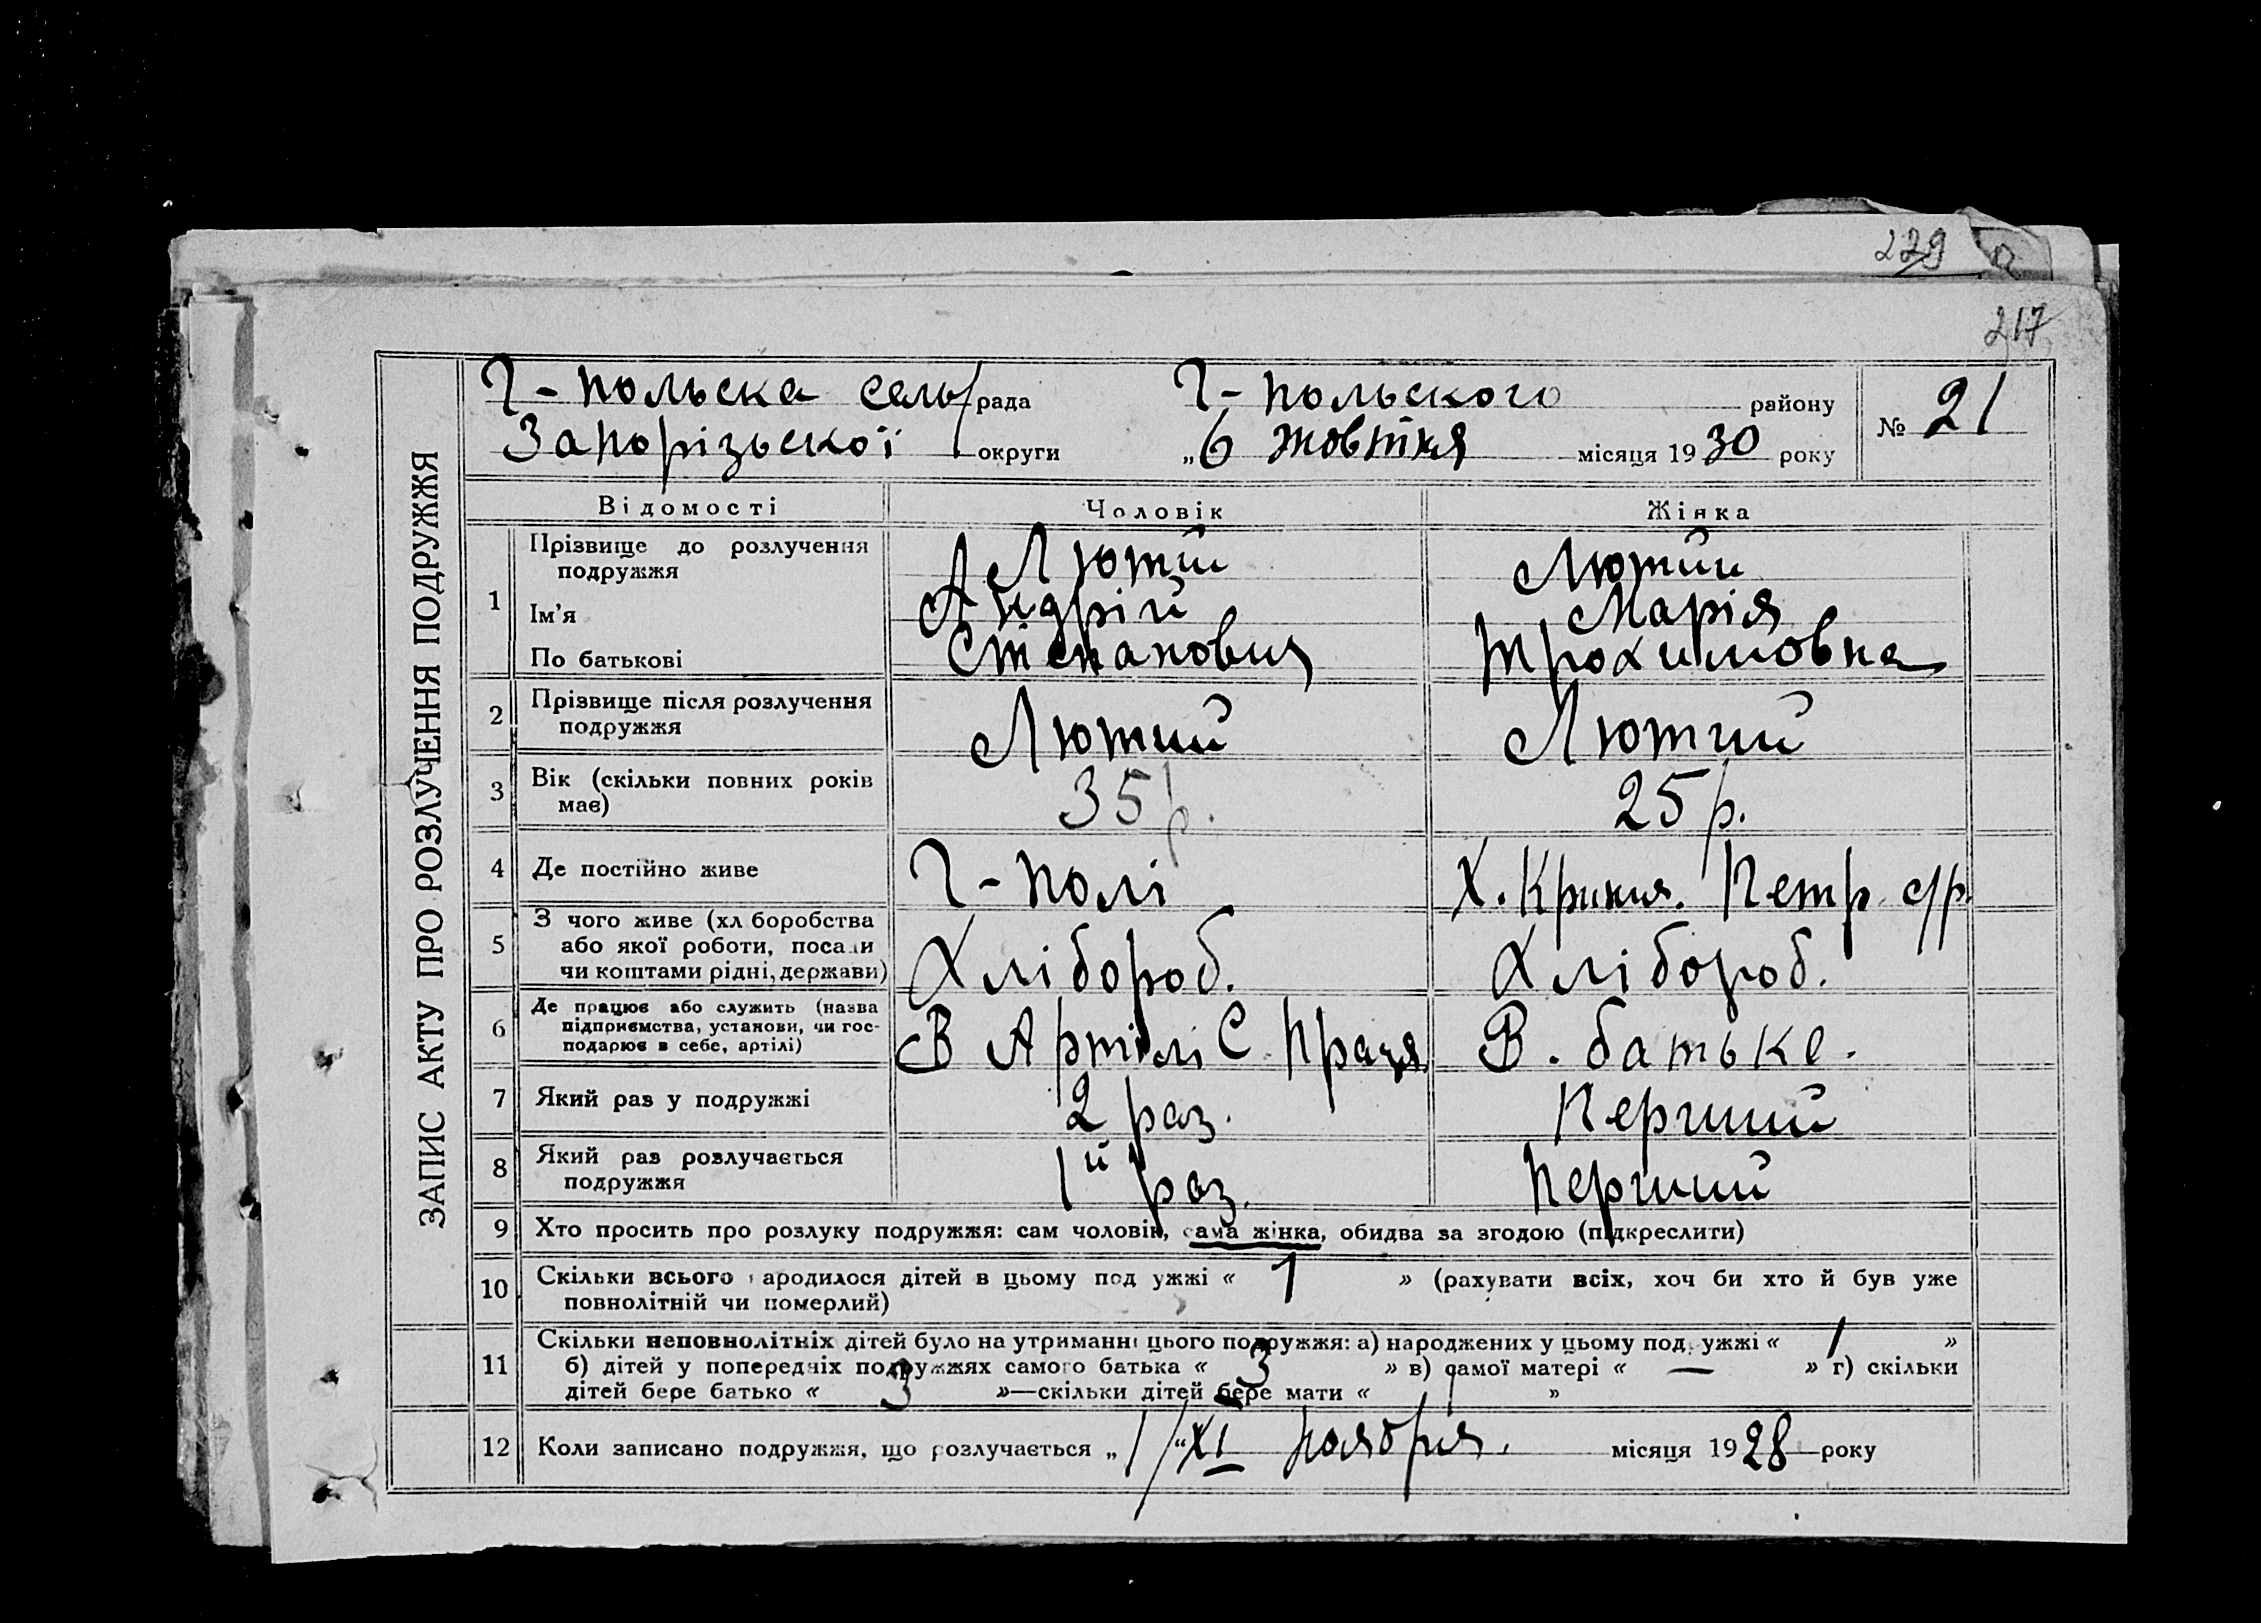 229
217
ЗАПИС АКТУ ПРО РОЗЛУЧЕННЯ ПОДРУЖЖЯ
Г-польска сель/рада Г-польского району № 21
Запорізьскоі округи „6 жовтня місяця 1930 року
Відомості Чоловік Жінка
1 Прізвище до розлучення подружжя Лютий Лютий
Ім'я Андрій Марія
По батькові Степанович Трохимовна
2 Прізвище після розлучення подружжя Лютий Лютий
3 Вік (скільки повних років має) 35 р. 25 р.
4 Де постійно живе Г-Полі Х. Криния. Петр. с/р.
5 З чого живе (хл боробства або якої роботи, посади чи коштами рідні, держави) Хлібороб. Хлібороб.
6 Де працює або служить (назва підприємства, установи, чи господарює в себе, артілі) В Артілі С. Праця В. батьке.
7 Який раз у подружжі 2 раз. Перший
8 Який раз розлучається подружжя 1й раз. Перший
9 Хто просить про розлуку подружжя: сам чоловік, сама жінка, обидва за згодою (підкреслити)
10 Скільки всього народилося дітей в цьому подружжі « 1 » (рахувати всіх, хоч би хто й був уже
повнолітній чи померлий)
11 Скільки неповнолітніх дітей було на утриманні цього подружжя: а) народжених у цьому подружжі « 1 »
б) дітей у попередніх подружжях самого батька « 3 » в) самої матері « — » г) скільки
дітей бере батько « 3 »—скільки дітей бере мати « 1 »
12 Коли записано подружжя, що розлучається „ 1/"XI ноября. місяця 1928 року